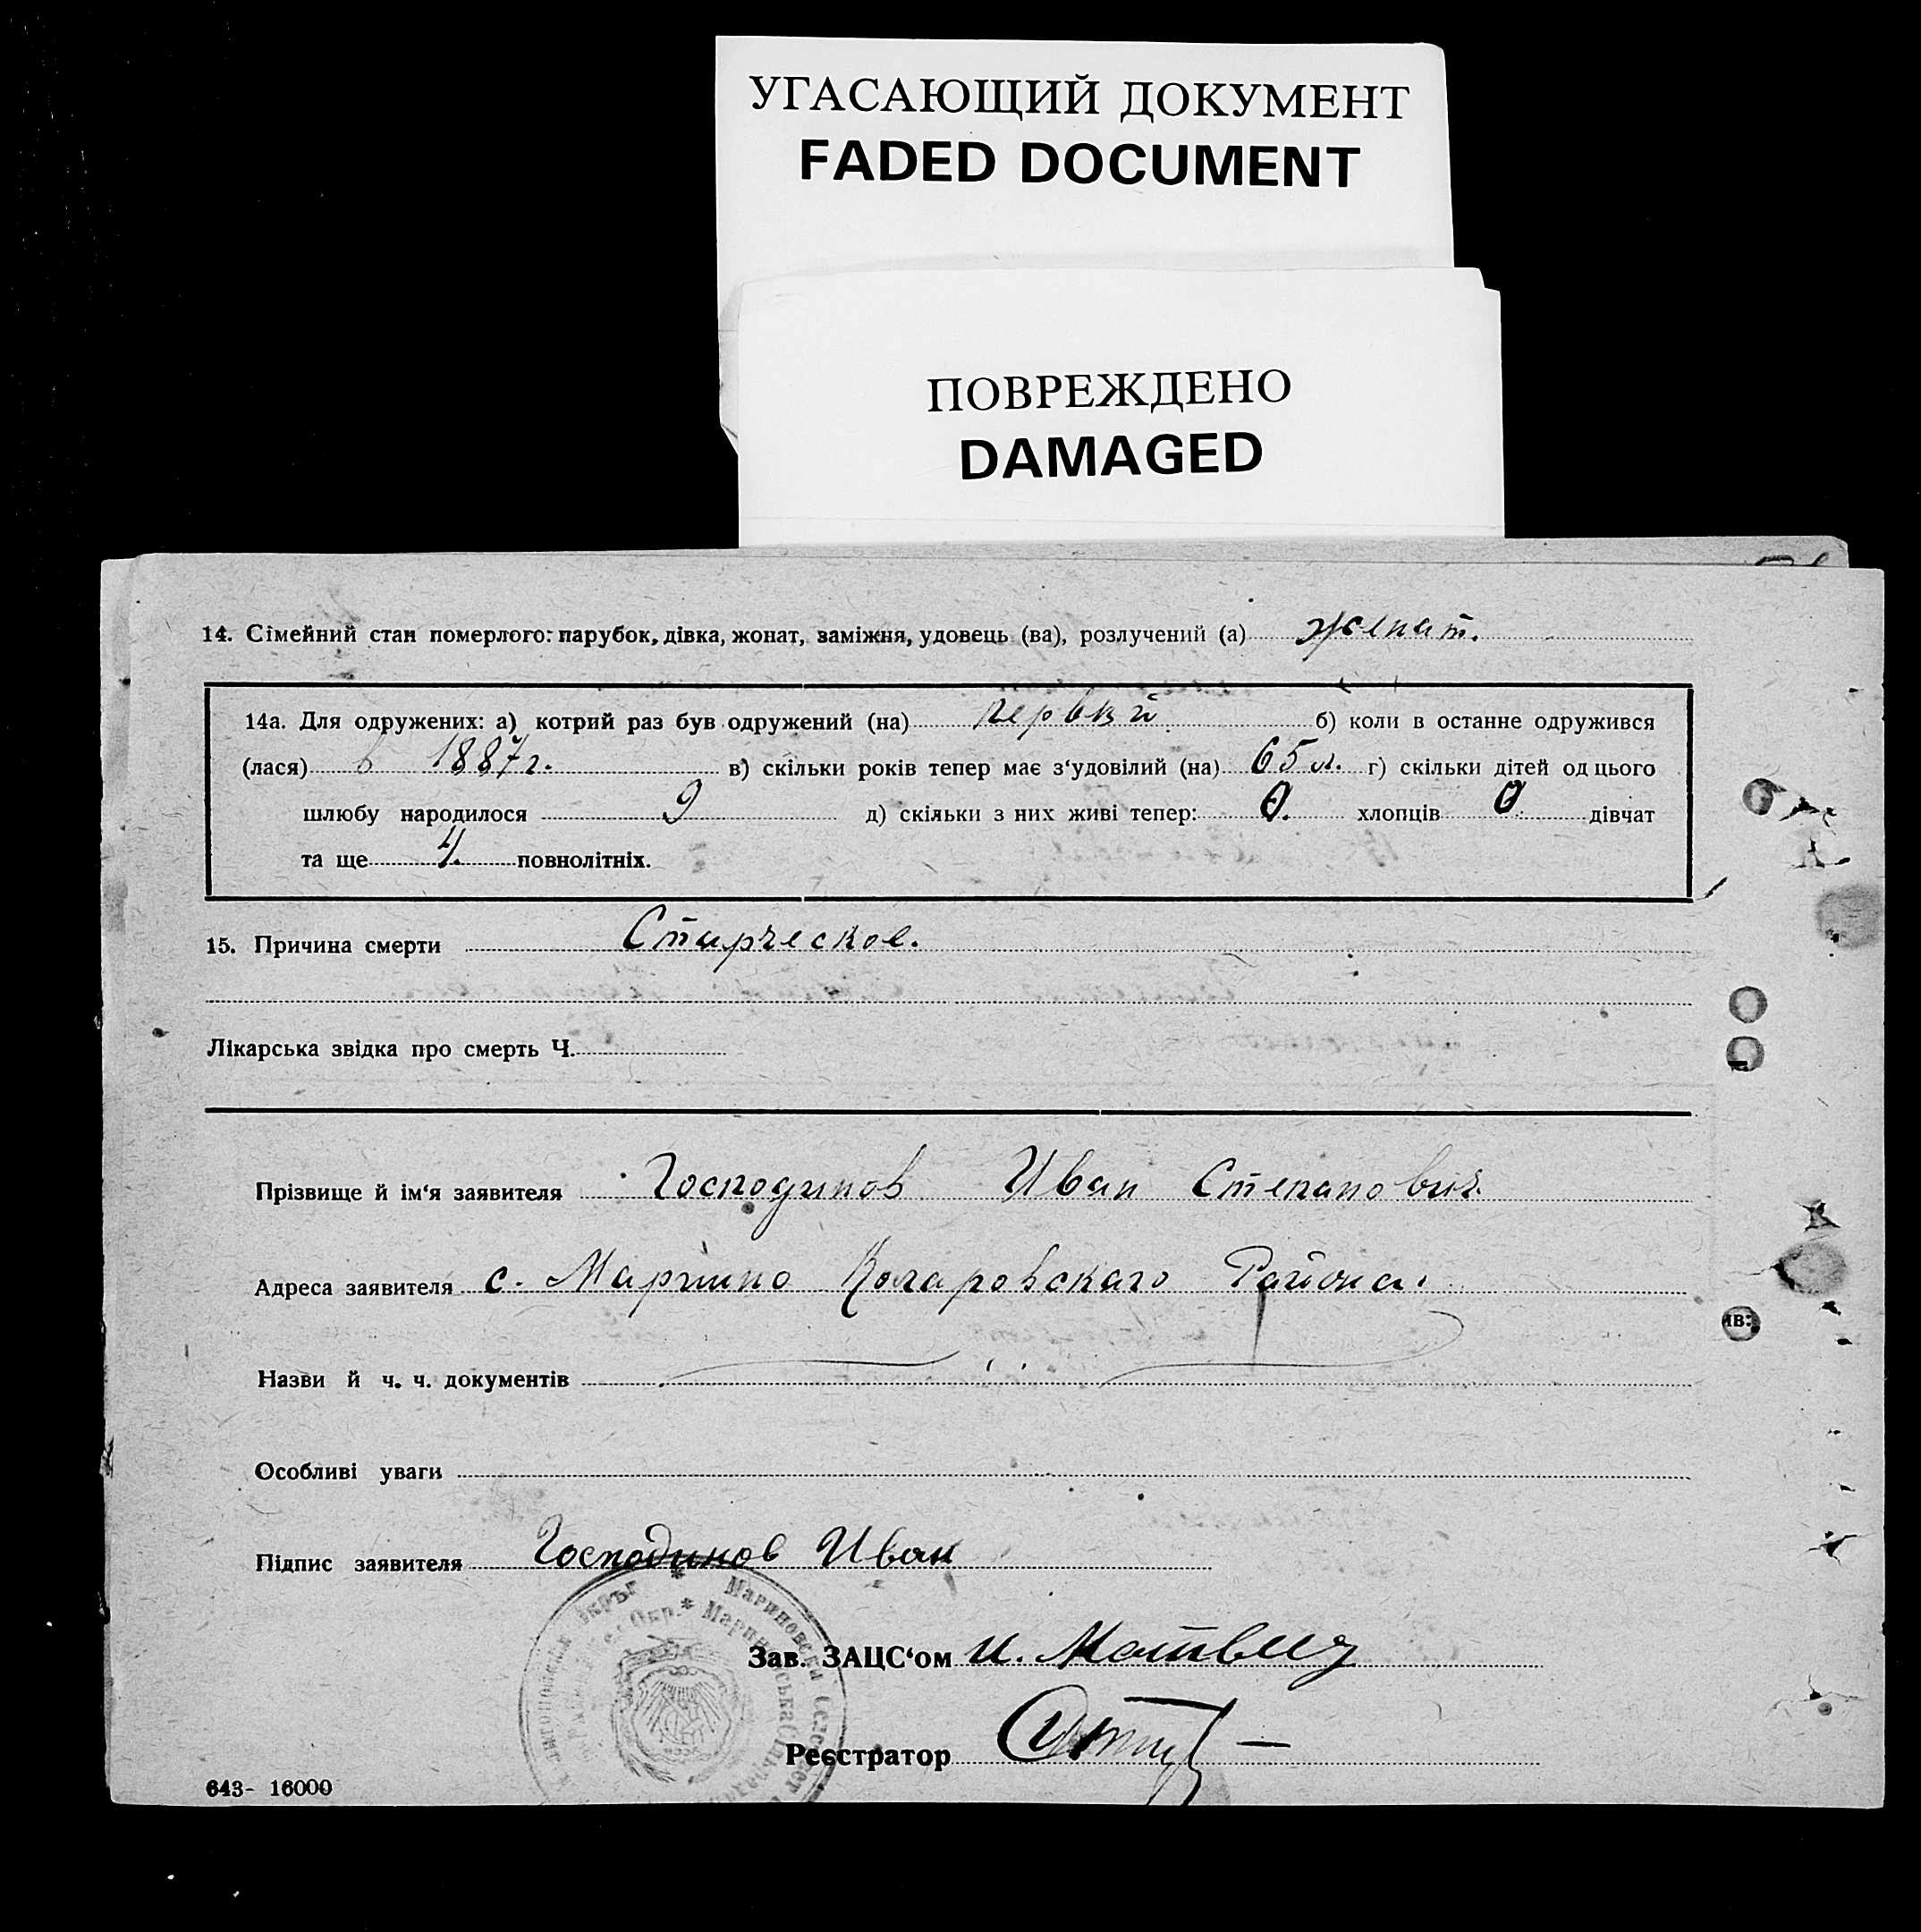 УГАСАЮЩИЙ ДОКУМЕНТ
FADED DOCUMENT
ПОВРЕЖДЕНО
DAMAGED
14. Сімейний стан померлого: парубок, дівка, жонат, заміжня, удовець (ва), розлучений (а) женат.
14а. Для одружених: а) котрий раз був одружений (на) первий б) коли в останне одружився
(лася) в 1887г. в) скільки років тепер має з‘удовілий (на) 65 л. г) скільки дітей од цього
шлюбу народилося 9 д) скільки з них живі тепер: 0. хлопців 0 дівчат
та ще 4. повнолітніх.
15. Причина смерти Старческое.
Лікарська звідка про смерть Ч.
Прізвище й ім‘я заявителя Господинов Иван Степанович
Адреса заявителя с. Марьино Коларовскаго Района.
ив:
Назви й ч. ч. документів
Особливі уваги
Підпис заявителя Господинов Иван
Зав. ЗАЦС‘ом И.
Реєстратор
643- 16000